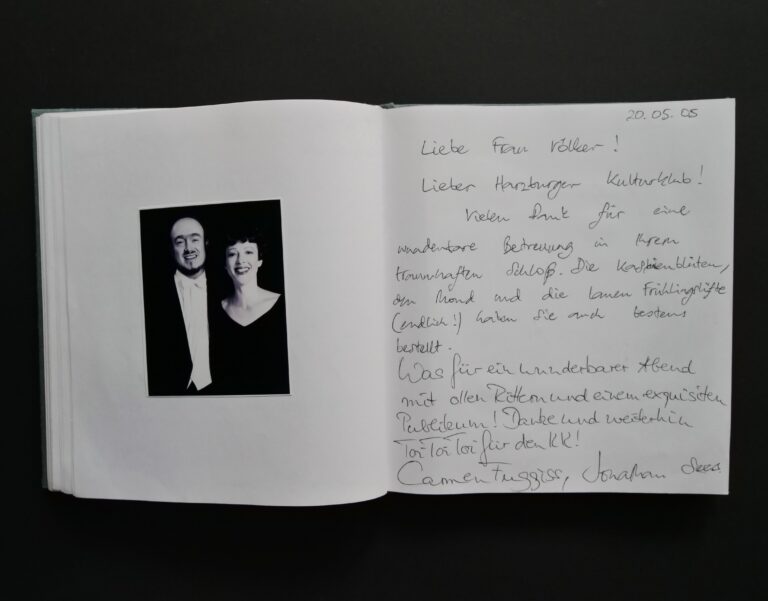 20.05.05
Liebe Frau Völker!
Lieber Harzburger Kulturklub!
Vielen Dank für eine
wunderbare Betreuung in Ihrem
traumhaften Schloß. Die Kastanienblüten,
den Mond und die lauen Frühlingslüfte
(endlich!) haben Sie auch bestens
bestellt.
Was für ein wunderbarer Abend
mit ollen Rittern und einem exquisiten
Publikum! Danke und weiterhin
Toi Toi Toi für den KK!
Carmen Fuggiss, Jonathan